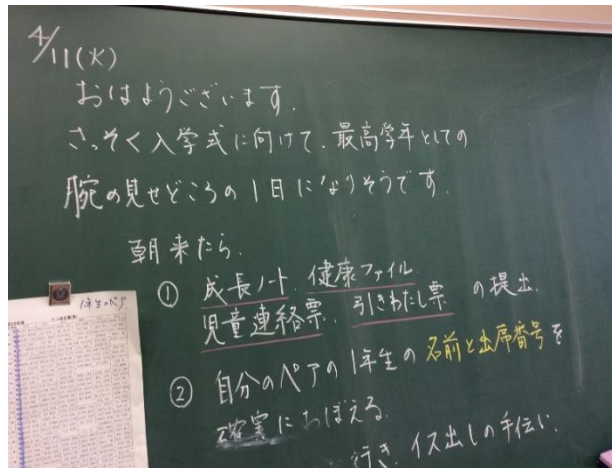 4/11(火)
おはようございます.
さっそく入学式に向けて、最高学年としての
腕の見せどころの1日になりそうです.
朝来たら.
① 成長ノート. 健康ファイル.
児童連絡票. 引きわたし票 の提出.
1年生のペア
② 自分のペアの1年生の名前と出席番号を
確実におぼえる.
行き、イス出しの手伝い.